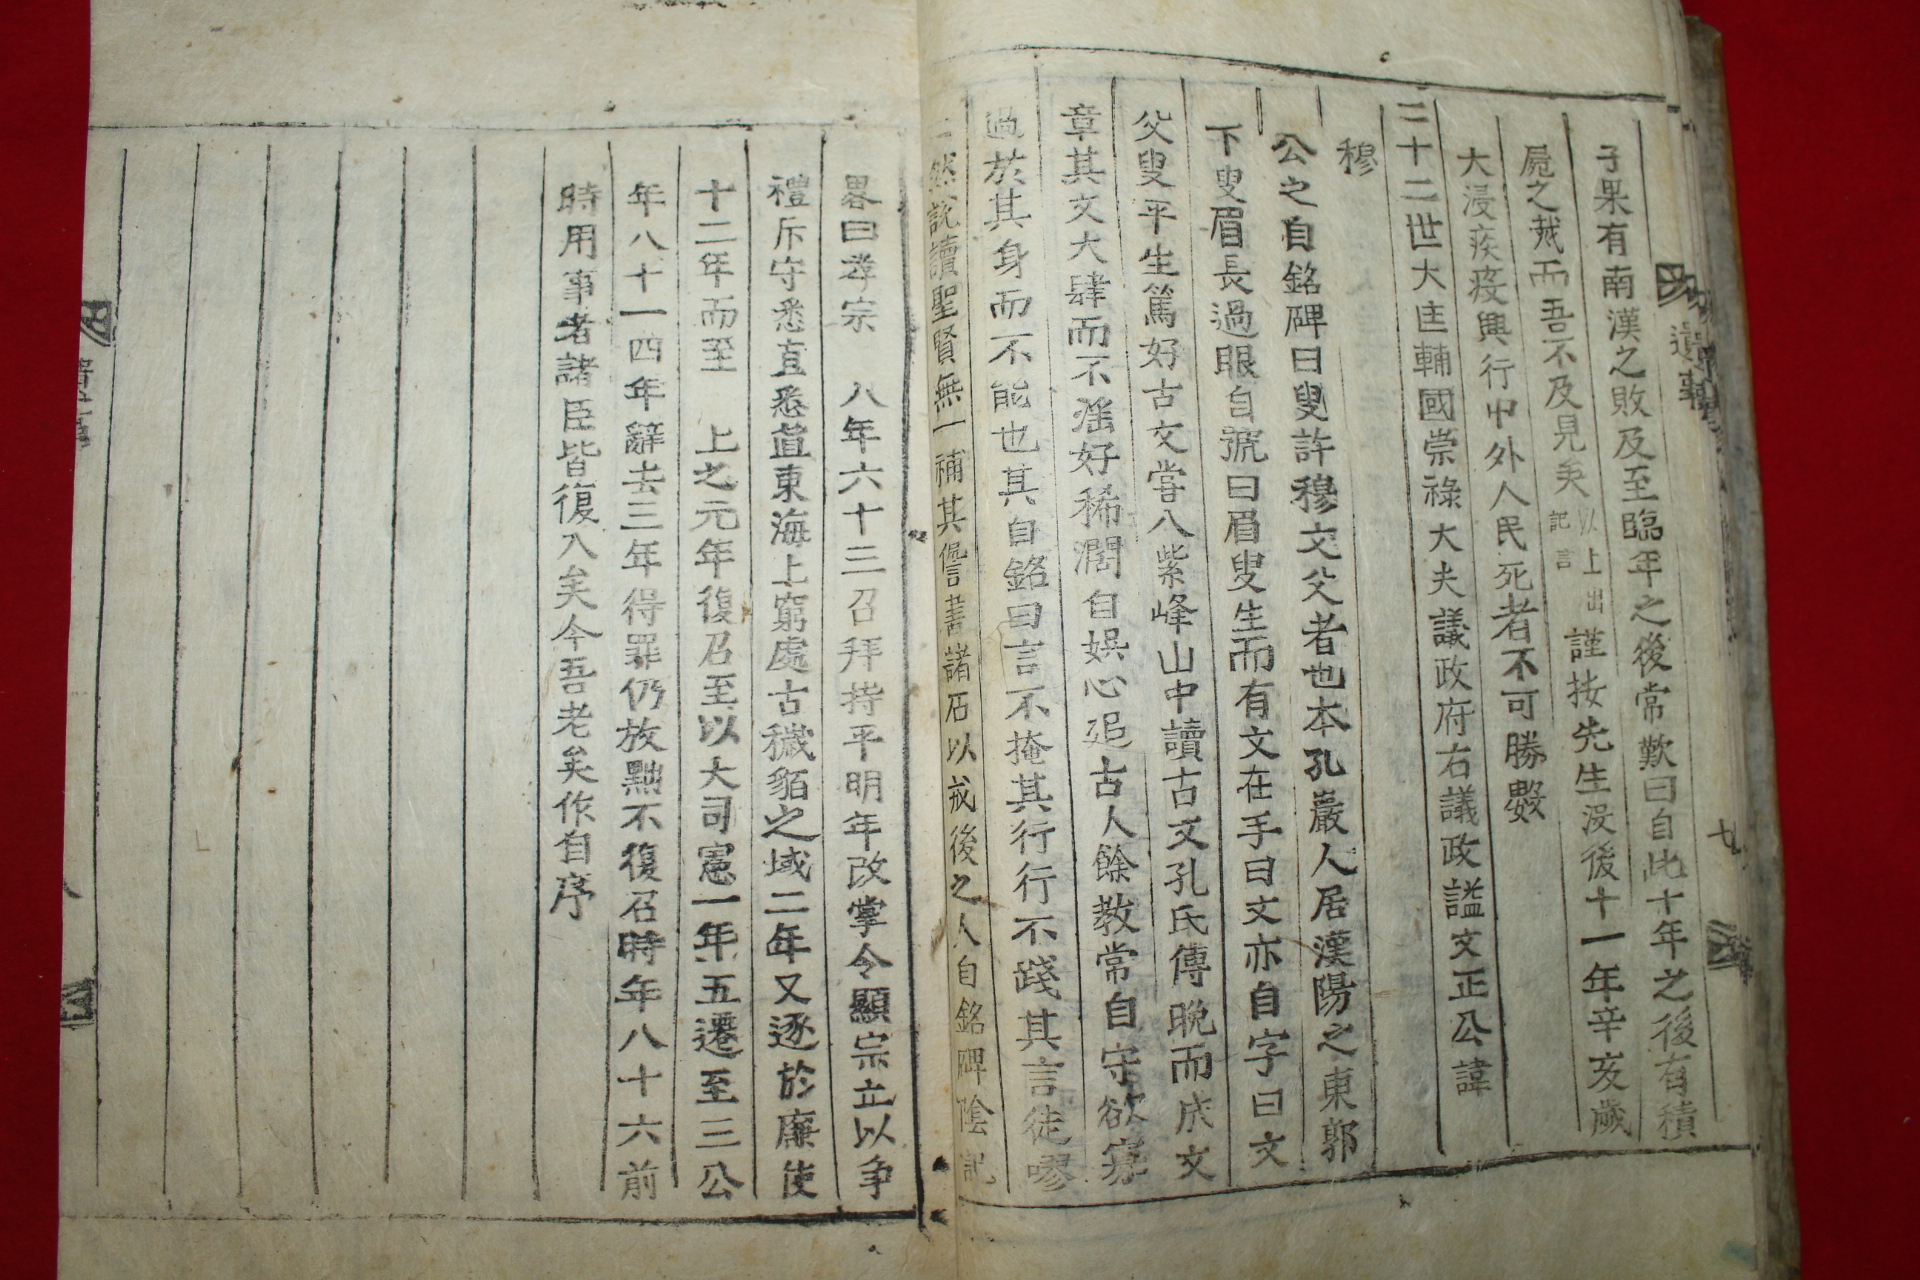 子果有南漢之敗及至臨年之後常歎曰自此十年之後有積
屍之烖而吾不及見矣以上出記言謹按先生沒後十一年辛亥歲
大浸疾疫興行中外人民死者不可勝數
二十二世大匡輔國崇祿大夫議政府右議政謚文正公諱
穆
公之自銘碑曰叟許穆文父者也本孔巖人居漢陽之東郭
下叟眉長過眼自號曰眉叟生而有文在手曰文亦自字曰文
父叟平生篤好古文嘗入紫峰山中讀古文孔氏傳晚而成文
章其文大肆而不滛好稀濶自娛心追古人餘教常自守欲寡
過於其身而不能也其自銘曰言不掩其行行不踐其言徒嘐
然說讀聖賢無一補其𠎝書諸石以戒後之人自銘碑陰記
畧曰孝宗 八年六十三召拜持平明年改掌令顯宗立以爭
禮斥守悉直悉直東海上窮處古穢貊之域二年又逐於廉使
十二年而至 上之元年復召至以大司憲一年五遷至三公
年八十一四年辭去三年得罪仍放黜不復召時年八十六前
時用事者諸臣皆復入矣今吾老矣作自序
遺事
七
八